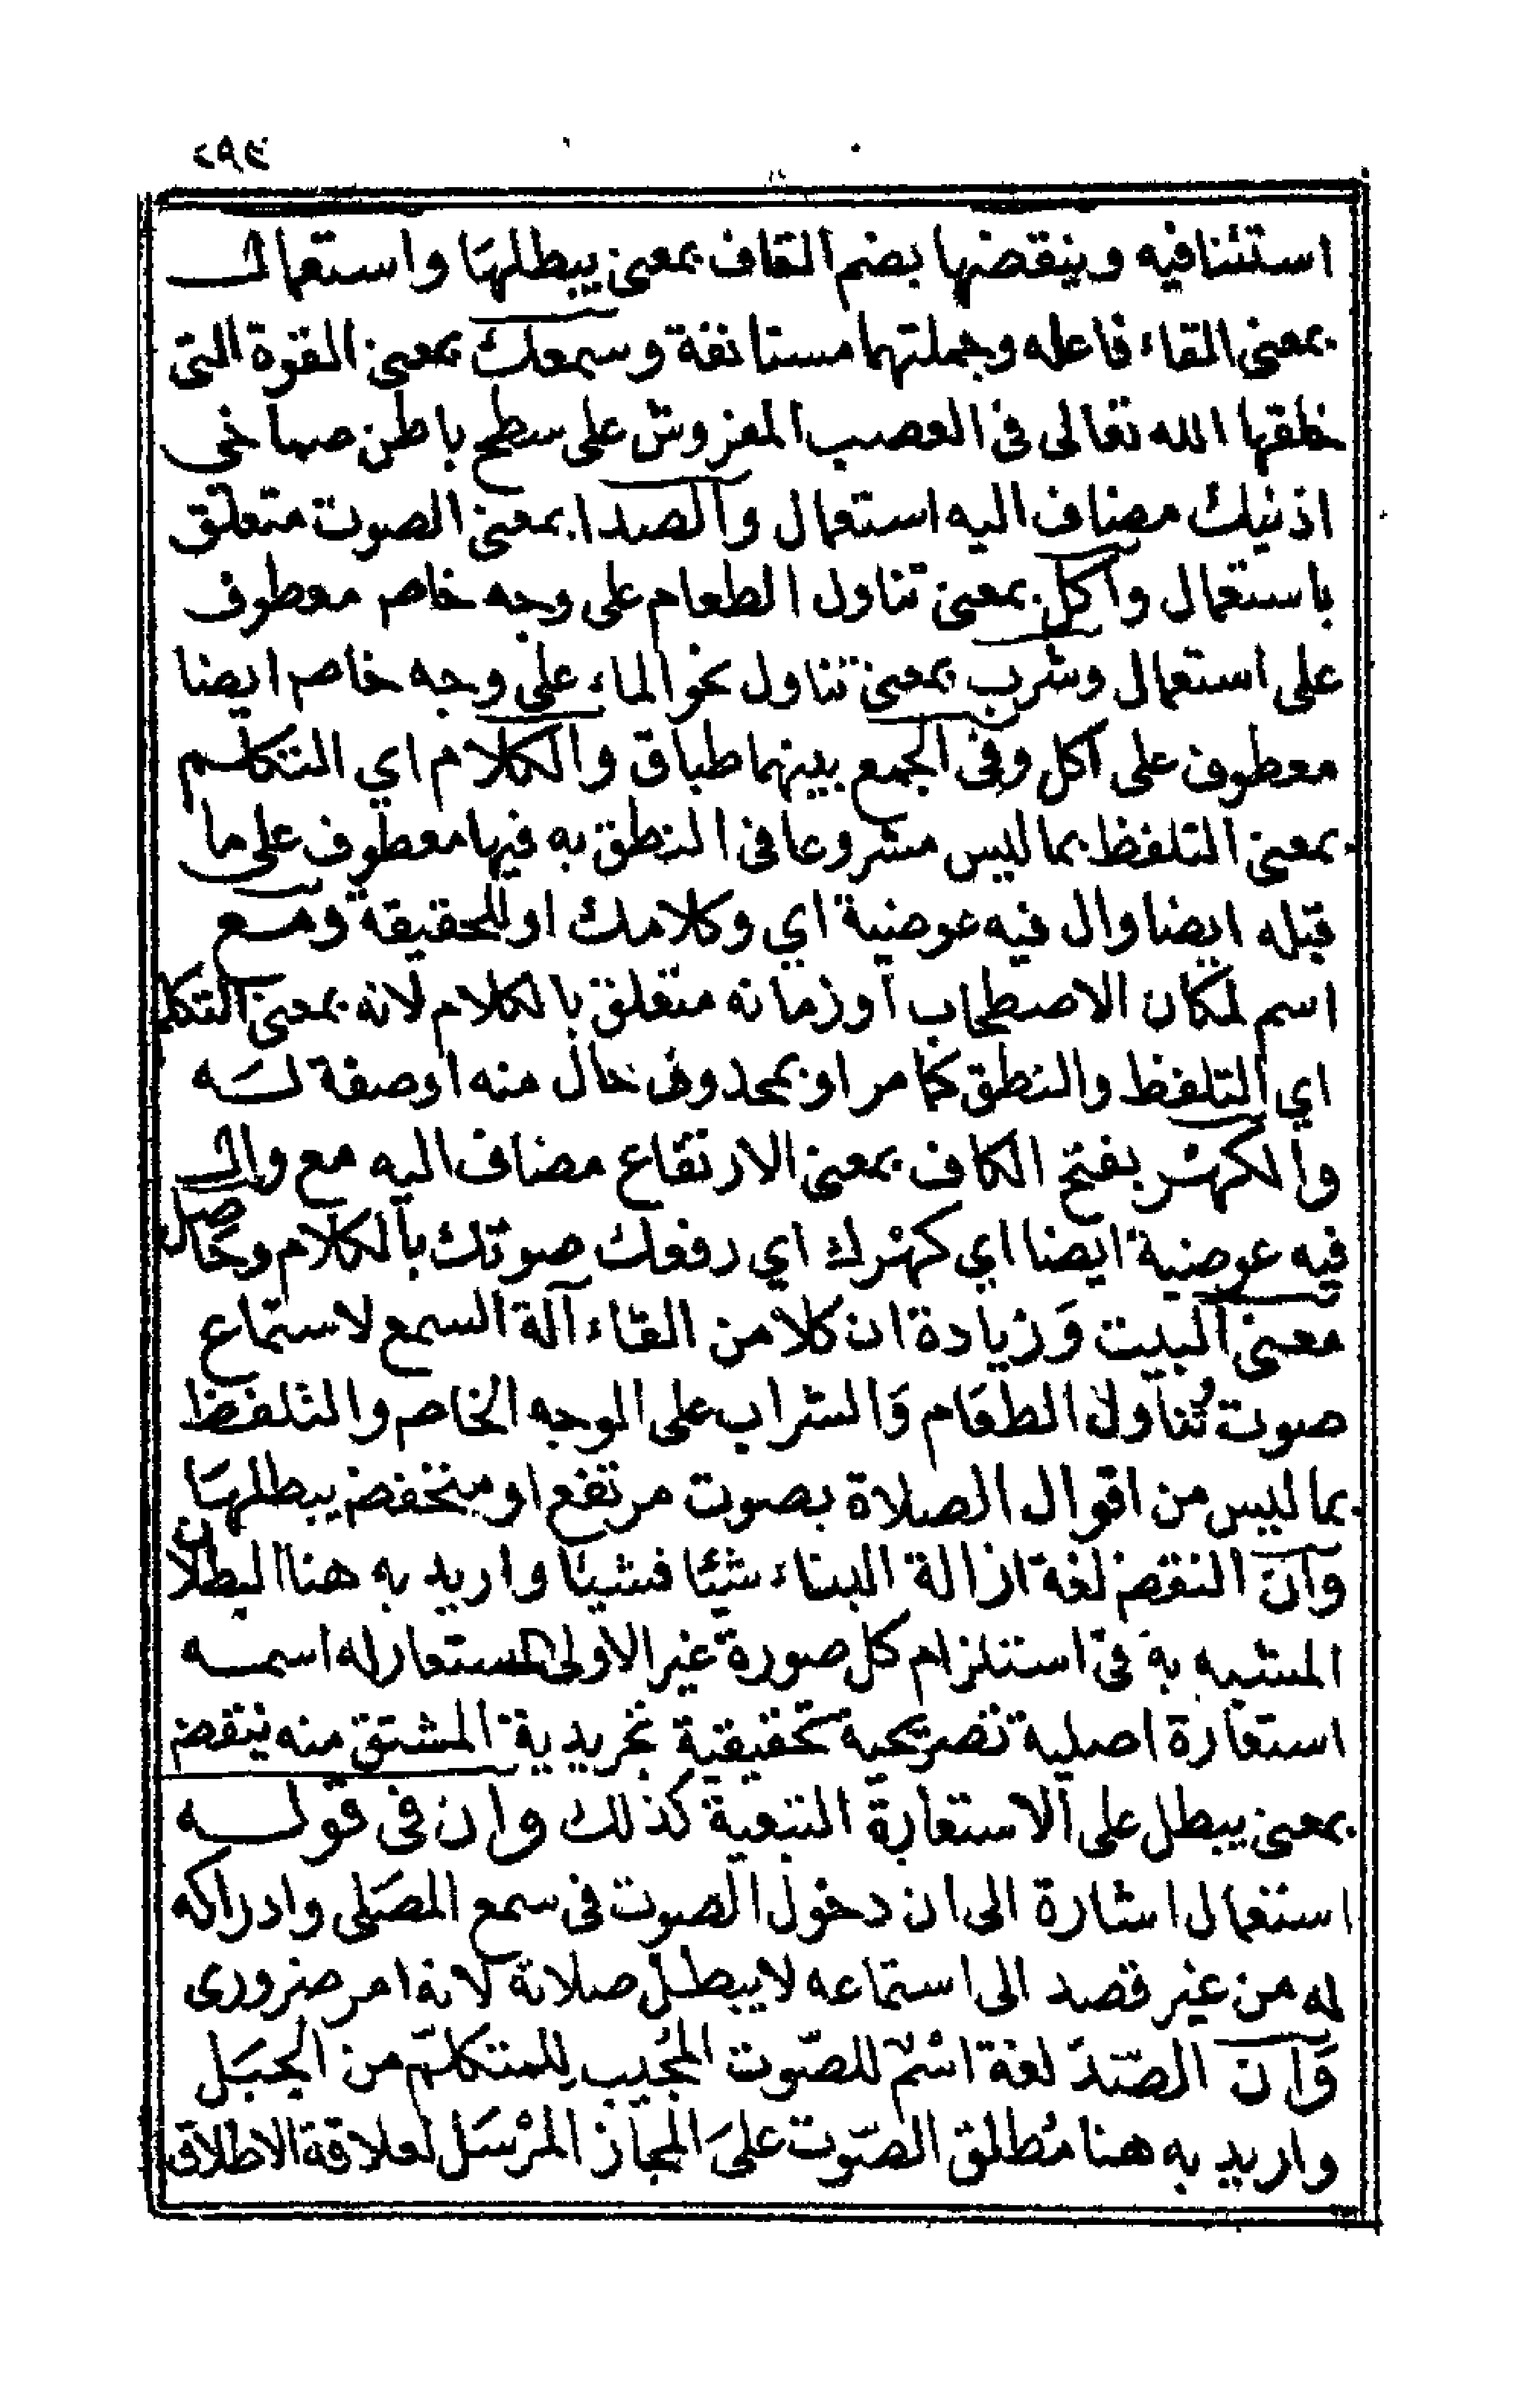 ٢٩٤
استئنافيه وينقضها بضم القاف بمعنى يبطلها واستعمال
بمعنى القاء فاعله وجملتهما مستانفة وسمعك بمعنى القوة التى
خلقها الله تعالى فى العصب المفروش على سطح باطن صماخى
اذنيك مضاف اليه استعمال والصدا بمعنى الصوت متعلق
باستعمال واكل بمعنى تناول الطعام على وجه خاص معطوف
على استعمال وشرب بمعنى تناول نحو الماء على وجه خاص ايضا
معطوف على اكل وفى الجمع بينهما طباق والكلام اي التكلم
بمعنى التلفظ بما ليس مشروعا فى النطق به فيها معطوف على ما
قبله ايضا وال فيه عوضية اي وكلامك او للحقيقة ومع
اسم لمكان الاصطحاب او زمانه متعلق بالكلام لانه بمعنى التكلم
اي التلفظ والنطق كما مر او بمحذوف حال منه او صفة له
والكهر بفتح الكاف بمعنى الارتفاع مضاف اليه مع وال
فيه عوضية ايضا اي كهرك اي رفعك صوتك بالكلام وحاصل
معنى البيت وزيادة ان كلا من القاء آلة السمع لاستماع
صوت وتناول الطعام والشراب على الوجه الخاص والتلفظ
بما ليس من اقوال الصلاة بصوت مرتفع او منخفض يبطلها
وان النقض لغة ازالة البناء شيئا فشيئا واريد به هنا البطلان
المشبه به فى استلزام كل صورة غير الاولى المستعار له اسمه
استعارة اصلية تصريحية تحقيقية تجريدية المشتق منه ينقض
بمعنى يبطل على الاستعارة التبعية كذلك وان فى قوله
استعمال اشارة الى ان دخول الصوت فى سمع المصلى وادراكه
له من غير قصد الى استماعه لا يبطل صلاته لانه امر ضرورى
وان الصّدَ لغة اسْمٌ للصّوت المُجيب للمتكلّم من الجبَل
واريد به هنا مُطلق الصّوت علىَ المجاز المرْسَل لعلاقة الاطلاق